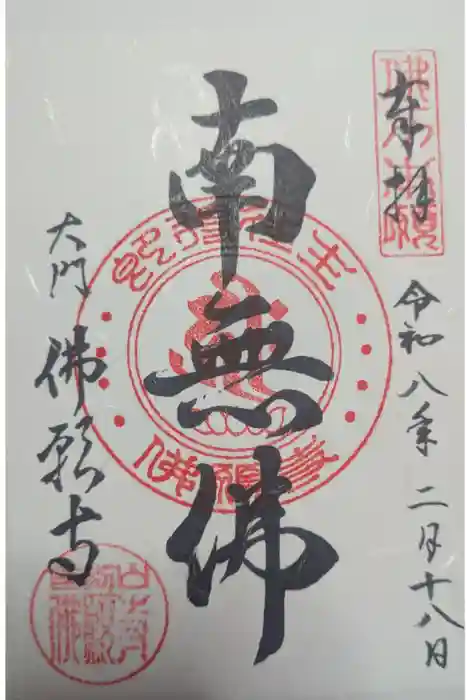 奉拝
令和八年二月十八日
南無佛
大門
佛願寺